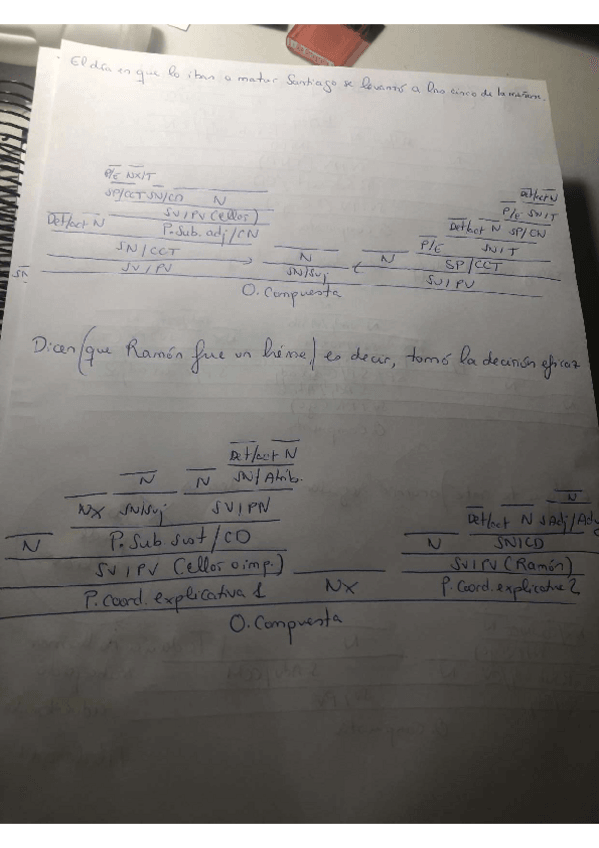 El día en que lo iban a matar Santiago se levantó a las cinco de la mañana.
P/E NX/T
Det/act N
SP/CCT SN/CD N
P/E SN/T
SV/PV (ellos)
Det/act N SP/CN
Det/act N
P. Sub. adj/CN
P/E SN/T
SN/CCT
N N SP/CCT
SN
SV/PV
SN/Suj
SV/PV
O. Compuesta
Dicen (que Ramón fue un héroe) es decir, tomó la decisión eficaz
Det/act N
N N SN/Atrib.
N
NX SN/Suj SV/PN
Det/act N SAdj/Ady
N P. Sub sust/CD
N SN/CD
SV/PV (ellos o imp.)
SV/PV (Ramón)
P. Coord. explicativa 1 NX P. Coord. explicativa 2
O. Compuesta